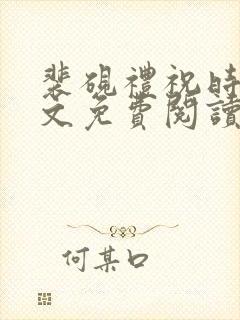 裴硯禮祝時
文免費閱讀
何某口